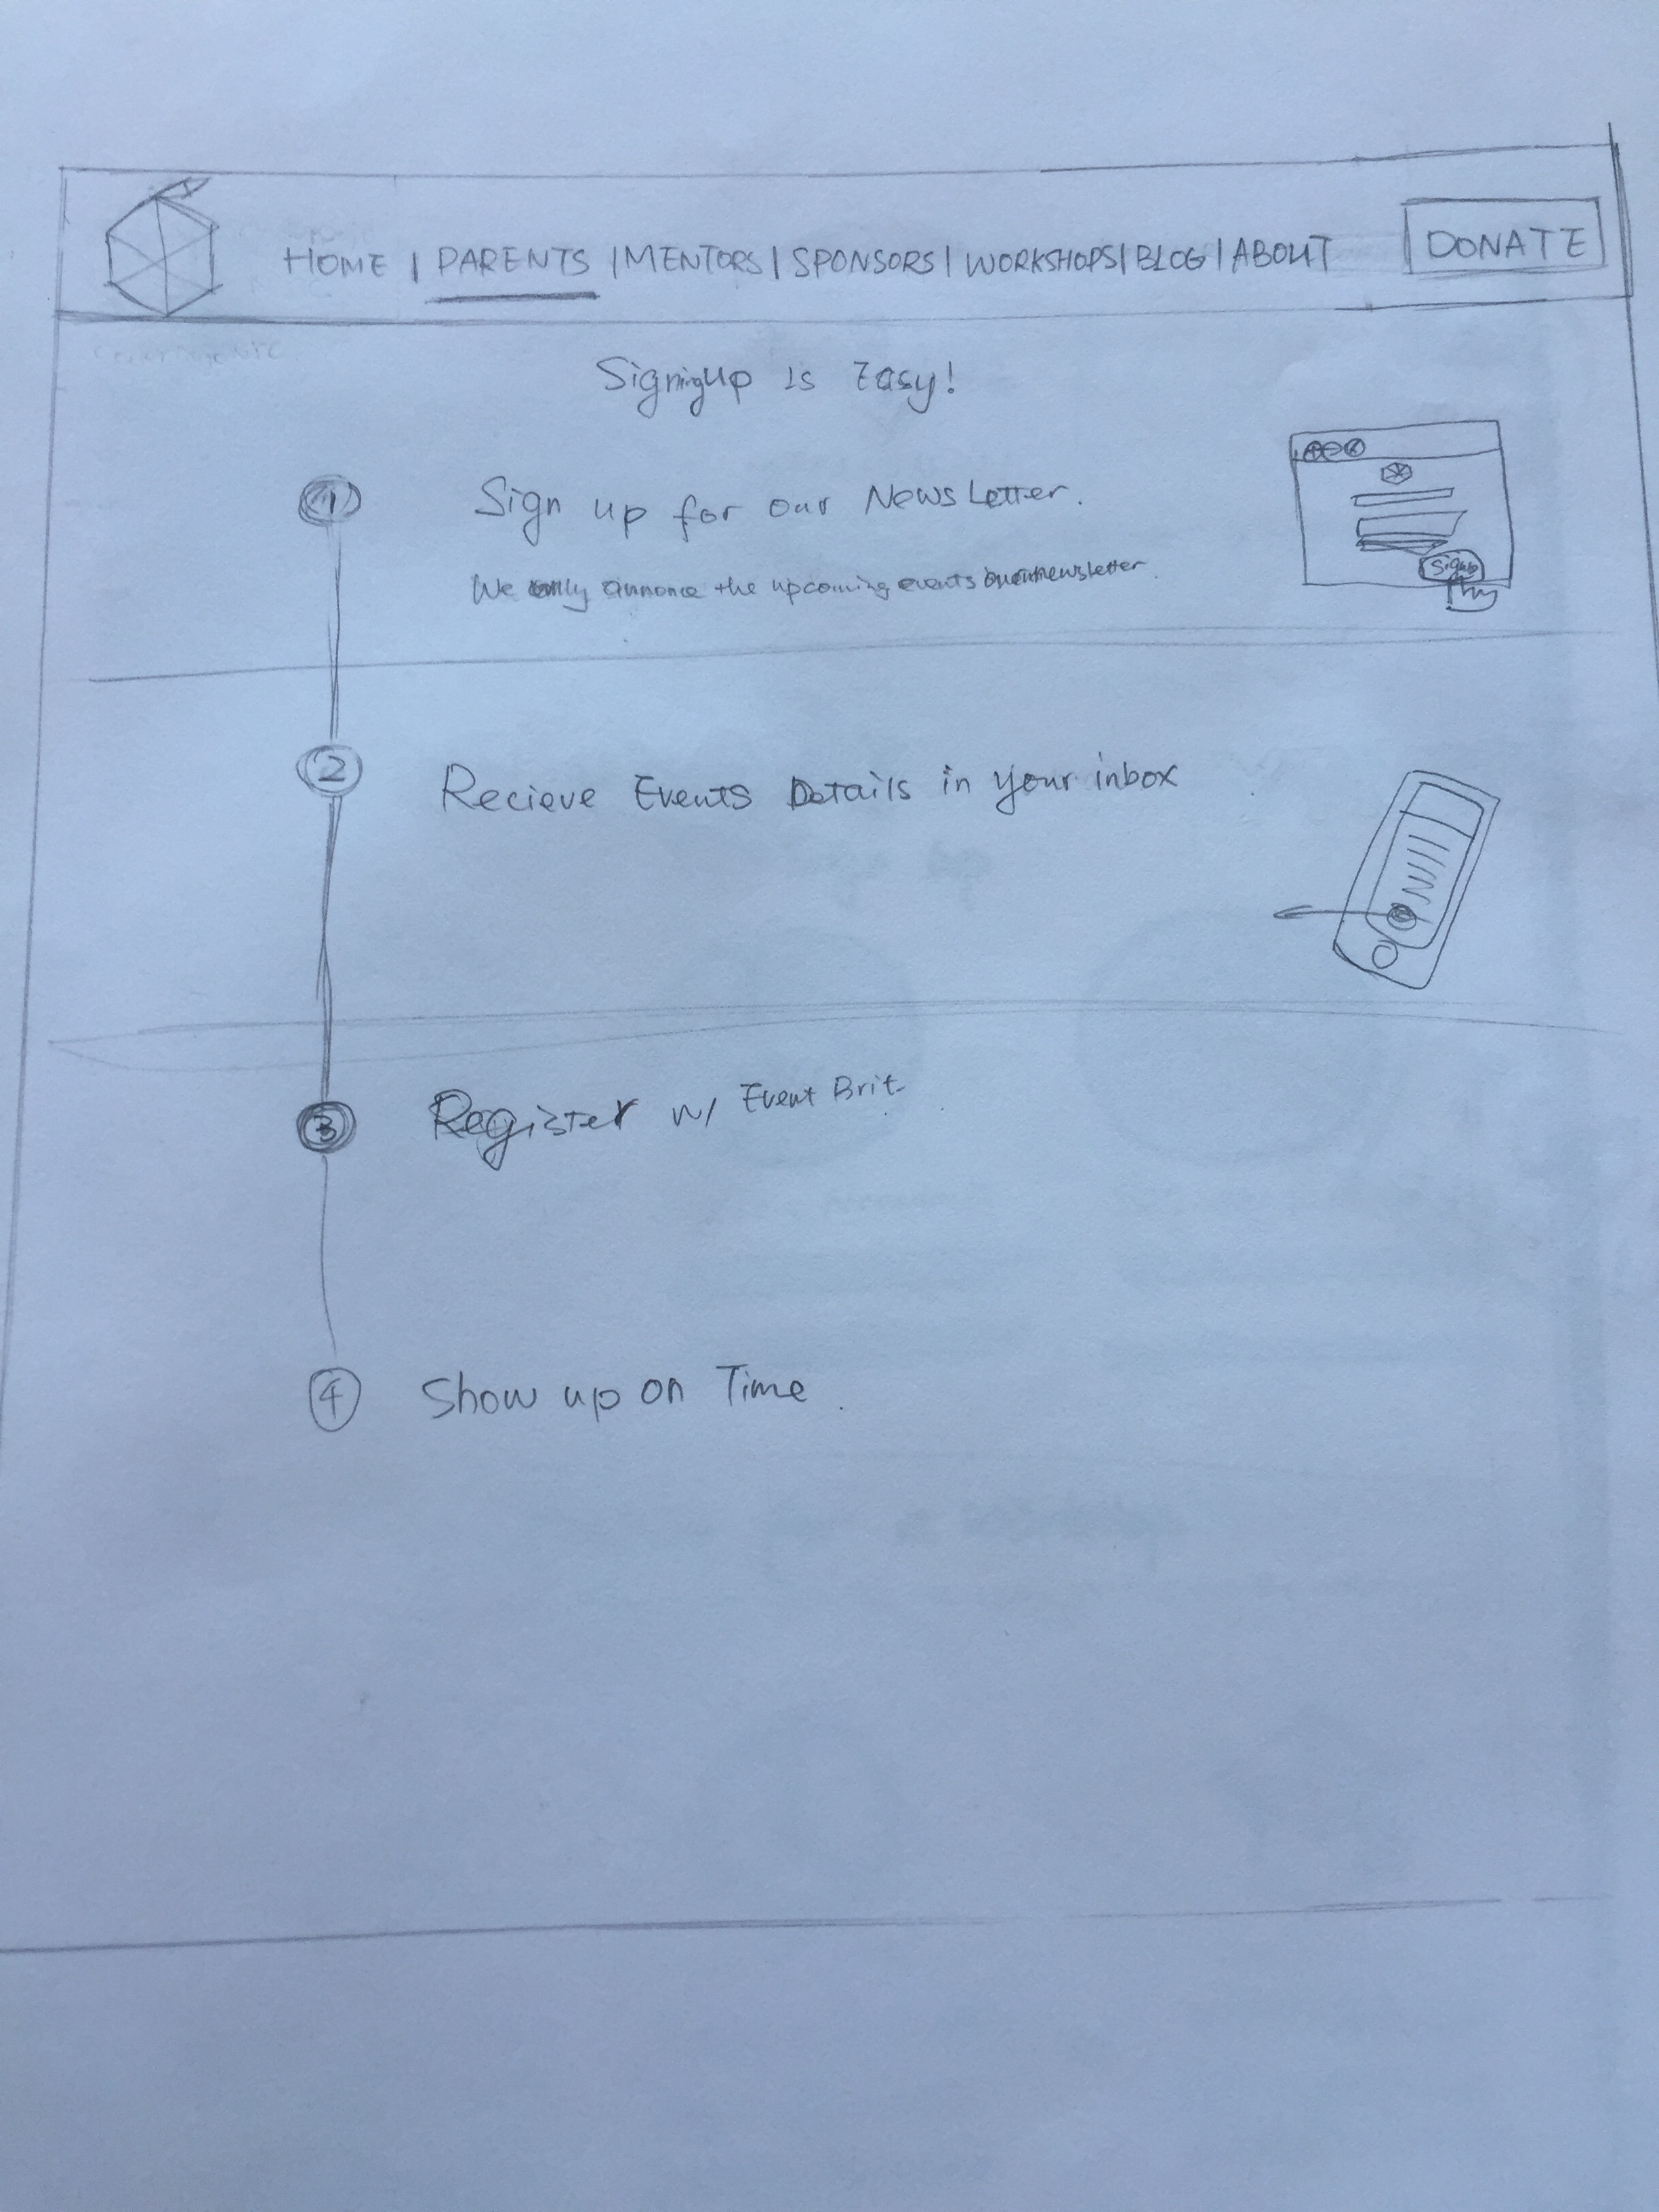 HOME | PARENTS | MENTORS | SPONSORS | WORKSHOPS | BLOG | ABOUT
DONATE
Signigup is Easy!
1
Sign up for our NewsLetter.
We only annonce the upcoming events newsletter.
Signup
2
Recieve Events Details in your inbox
3
Register w/ Event Brit
4
Show up on Time.